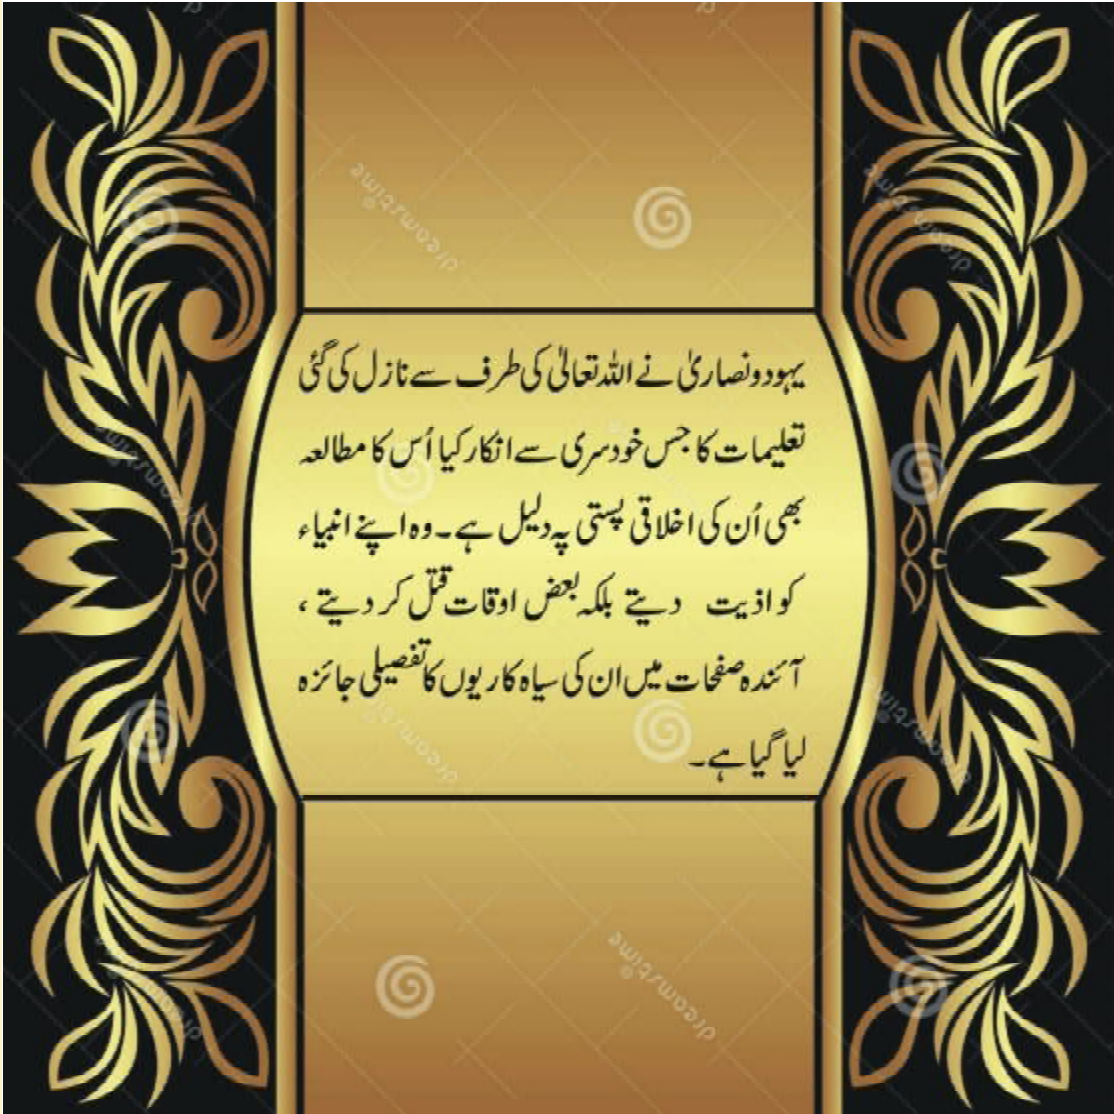 یہود ونصاریٰ نے اللہ تعالیٰ کی طرف سے نازل کی گئی
تعلیمات کا جس خودسری سے انکار کیا اُس کا مطالعہ
بھی اُن کی اخلاقی پستی پہ دلیل ہے۔ وہ اپنے انبیاء
کو اذیت دیتے بلکہ بعض اوقات قتل کر دیتے ،
آئندہ صفحات میں ان کی سیاہ کاریوں کا تفصیلی جائزہ
لیا گیا ہے۔
dreamstime
dreamstime
dreamstime
dreamstime
dreamstime
dreamstime